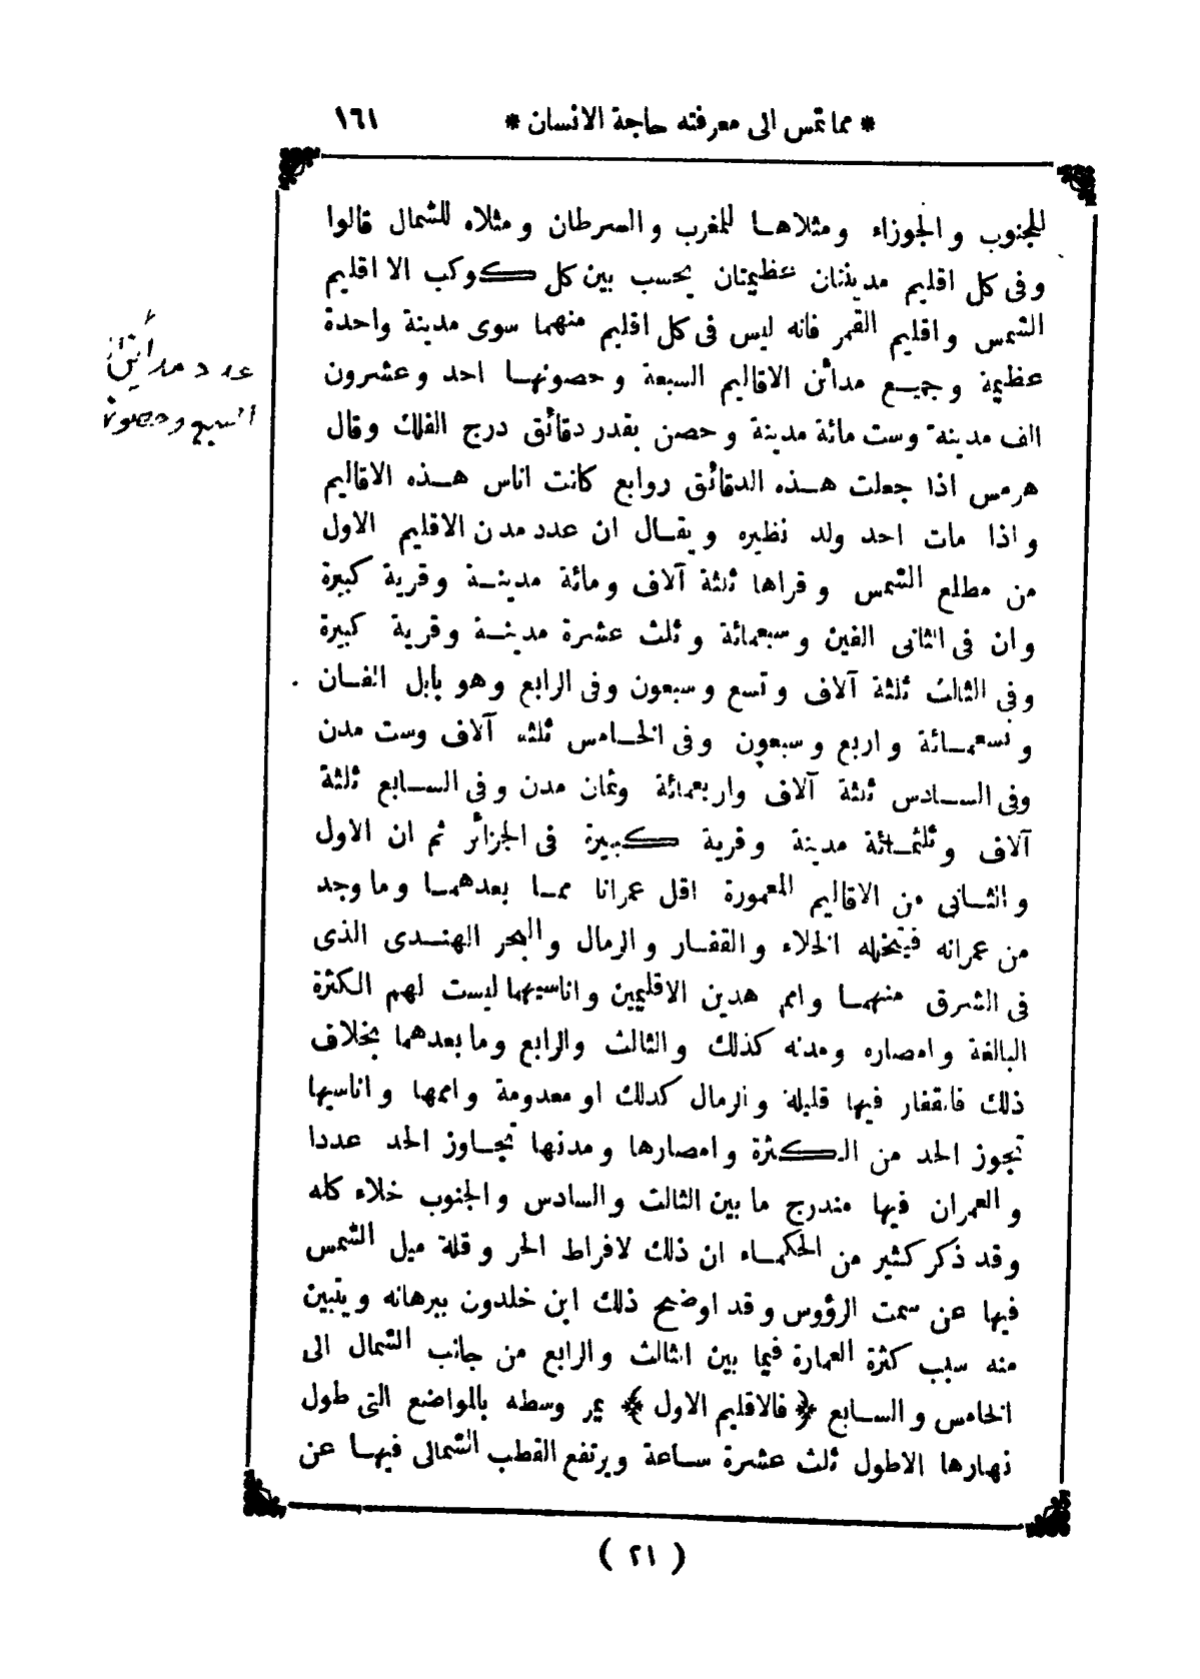 * مما تمس الى معرفته حاجة الانسان * ١٦١
للجنوب والجوزاء ومثلاها للمغرب والسرطان ومثلاه للشمال قالوا
وفى كل اقليم مدينتان عظيمتان بحسب بين كل كوكب الا اقليم
الشمس واقليم القمر فانه ليس فى كل اقليم منهما سوى مدينة واحدة
عظيمة وجميع مدائن الاقاليم السبعة وحصونها احد وعشرون
الف مدينة وست مائة مدينة وحصن بقدر دقائق درج الفلك وقال
هرمس اذا جعلت هذه الدقائق روابع كانت اناس هذه الاقاليم
واذا مات احد ولد نظيره ويقال ان عدد مدن الاقليم الاول
من مطلع الشمس وقراها ثلثة آلاف ومائة مدينة وقرية كبيرة
وان فى الثانى الفين وسبعمائة وثلث عشرة مدينة وقرية كبيرة
وفى الثالث ثلثة آلاف وتسع وسبعون وفى الرابع وهو بابل الفان
وتسعمائة واربع وسبعون وفى الخامس ثلثة آلاف وست مدن
وفى السادس ثلثة آلاف واربعمائة وثمان مدن وفى السابع ثلثة
آلاف وثلثمائة مدينة وقرية كبيرة فى الجزائر ثم ان الاول
والثانى من الاقاليم المعمورة اقل عمرانا مما بعدهما وما وجد
من عمرانه فيتخلله الخلاء والقفار والرمال والبحر الهندى الذى
فى الشرق منهما وامم هدين الاقليمين واناسيهما ليست لهم الكثرة
البالغة وامصاره ومدنه كذلك والثالث والرابع وما بعدهما بخلاف
ذلك فالقفار فيها قليلة والرمال كدلك او معدومة واممها واناسيها
تجوز الحد من الكثرة وامصارها ومدنها تجاوز الحد عددا
والعمران فيها مندرج ما بين الثالث والسادس والجنوب خلاء كله
وقد ذكر كثير من الحكماء ان ذلك لافراط الحر وقلة ميل الشمس
فيها عن سمت الرؤوس وقد اوضح ذلك ابن خلدون ببرهانه ويتبين
منه سبب كثرة العمارة فيما بين الثالث والرابع من جانب الشمال الى
الخامس والسابع ﴿ فالاقليم الاول ﴾ يمر وسطه بالمواضع التى طول
نهارها الاطول ثلث عشرة ساعة ويرتفع القطب الشمالى فيها عن
( ٢١ )
عدد مدائن
السبع وحصون